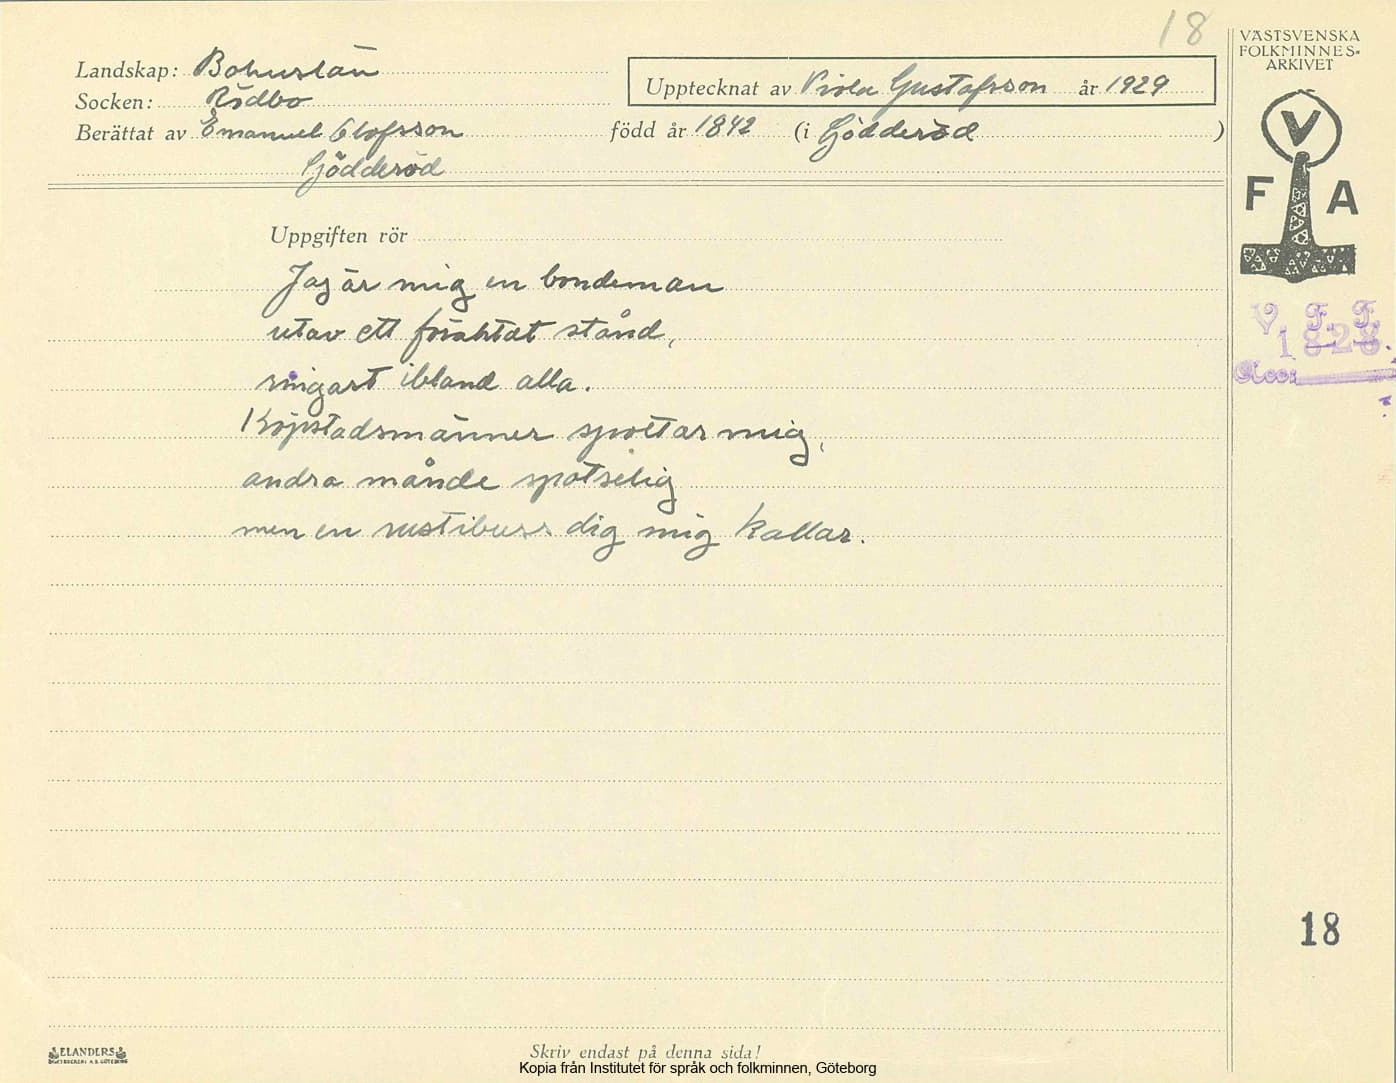 18
Landskap: Bohuslän
Socken: Rödbo
Upptecknat av Viola Gustafsson år 1929
Berättat av Emanuel Olofsson född år 1842 (i Gödderöd)
Gödderöd
VÄSTSVENSKA
FOLKMINNES-
ARKIVET
V
F A
Uppgiften rör
Jag är mig en bondeman
utav ett föraktat stånd,
ringast ibland alla.
Köpstadsmänner spottar mig,
andra månde spotselig
men en rustibuss dig mig kallar.
V. F. F.
1828.
Acc:
18
ELANDERS
Skriv endast på denna sida!
Kopia från Institutet för språk och folkminnen, Göteborg